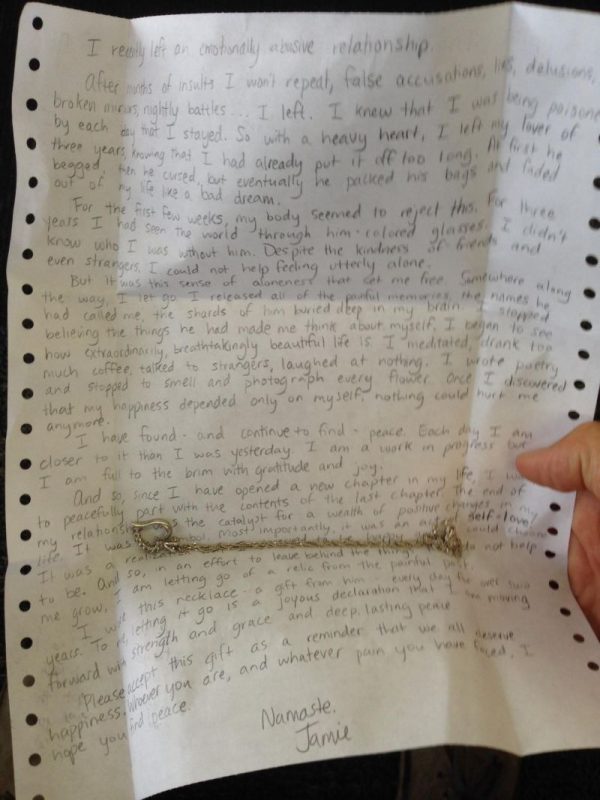 I recently left an emotionally abusive relationship.
After months of insults I won't repeat, false accusations, lies, delusions,
broken mirrors, nightly battles... I left. I knew that I was being poisoned
by each day that I stayed. So with a heavy heart, I left my lover of
three years, knowing that I had already put it off too long. At first he
begged, then he cursed, but eventually he packed his bags and faded
out of my life like a bad dream.
For the first few weeks, my body seemed to reject this. For three
years I had seen the world through him-colored glasses. I didn't
know who I was without him. Despite the kindness of friends and
even strangers, I could not help feeling utterly alone.
But it was this sense of aloneness that set me free. Somewhere along
the way, I let go. I released all of the painful memories, the names he
had called me, the shards of him buried deep in my brain. I stopped
believing the things he had made me think about myself. I began to see
how extraordinarily, breathtakingly beautiful life is. I meditated, drank too
much coffee, talked to strangers, laughed at nothing. I wrote poetry
and stopped to smell and photograph every flower. Once I discovered
that my happiness depended only on myself, nothing could hurt me
anymore.
I have found - and continue to find - peace. Each day I am
closer to it than I was yesterday. I am a work in progress but
I am full to the brim with gratitude and joy.
And so, since I have opened a new chapter in my life, I
to peacefully part with the contents of the last chapter. The end of
my relationship the catalyst for a wealth of positive changes in my
life. It was most importantly, it was an self-love!
It was a I could choose
to be. And so, in an effort to leave behind the things do not help
me grow, I am letting go of a relic from the painful past.
I this necklace - a gift from him - every day for over two
years. To me, letting it go is a joyous declaration that I am moving
forward with strength and grace and deep, lasting peace.
Please accept this gift as a reminder that we all deserve
happiness. Whoever you are, and whatever pain you have faced, I
hope you find peace.
Namaste.
Jamie